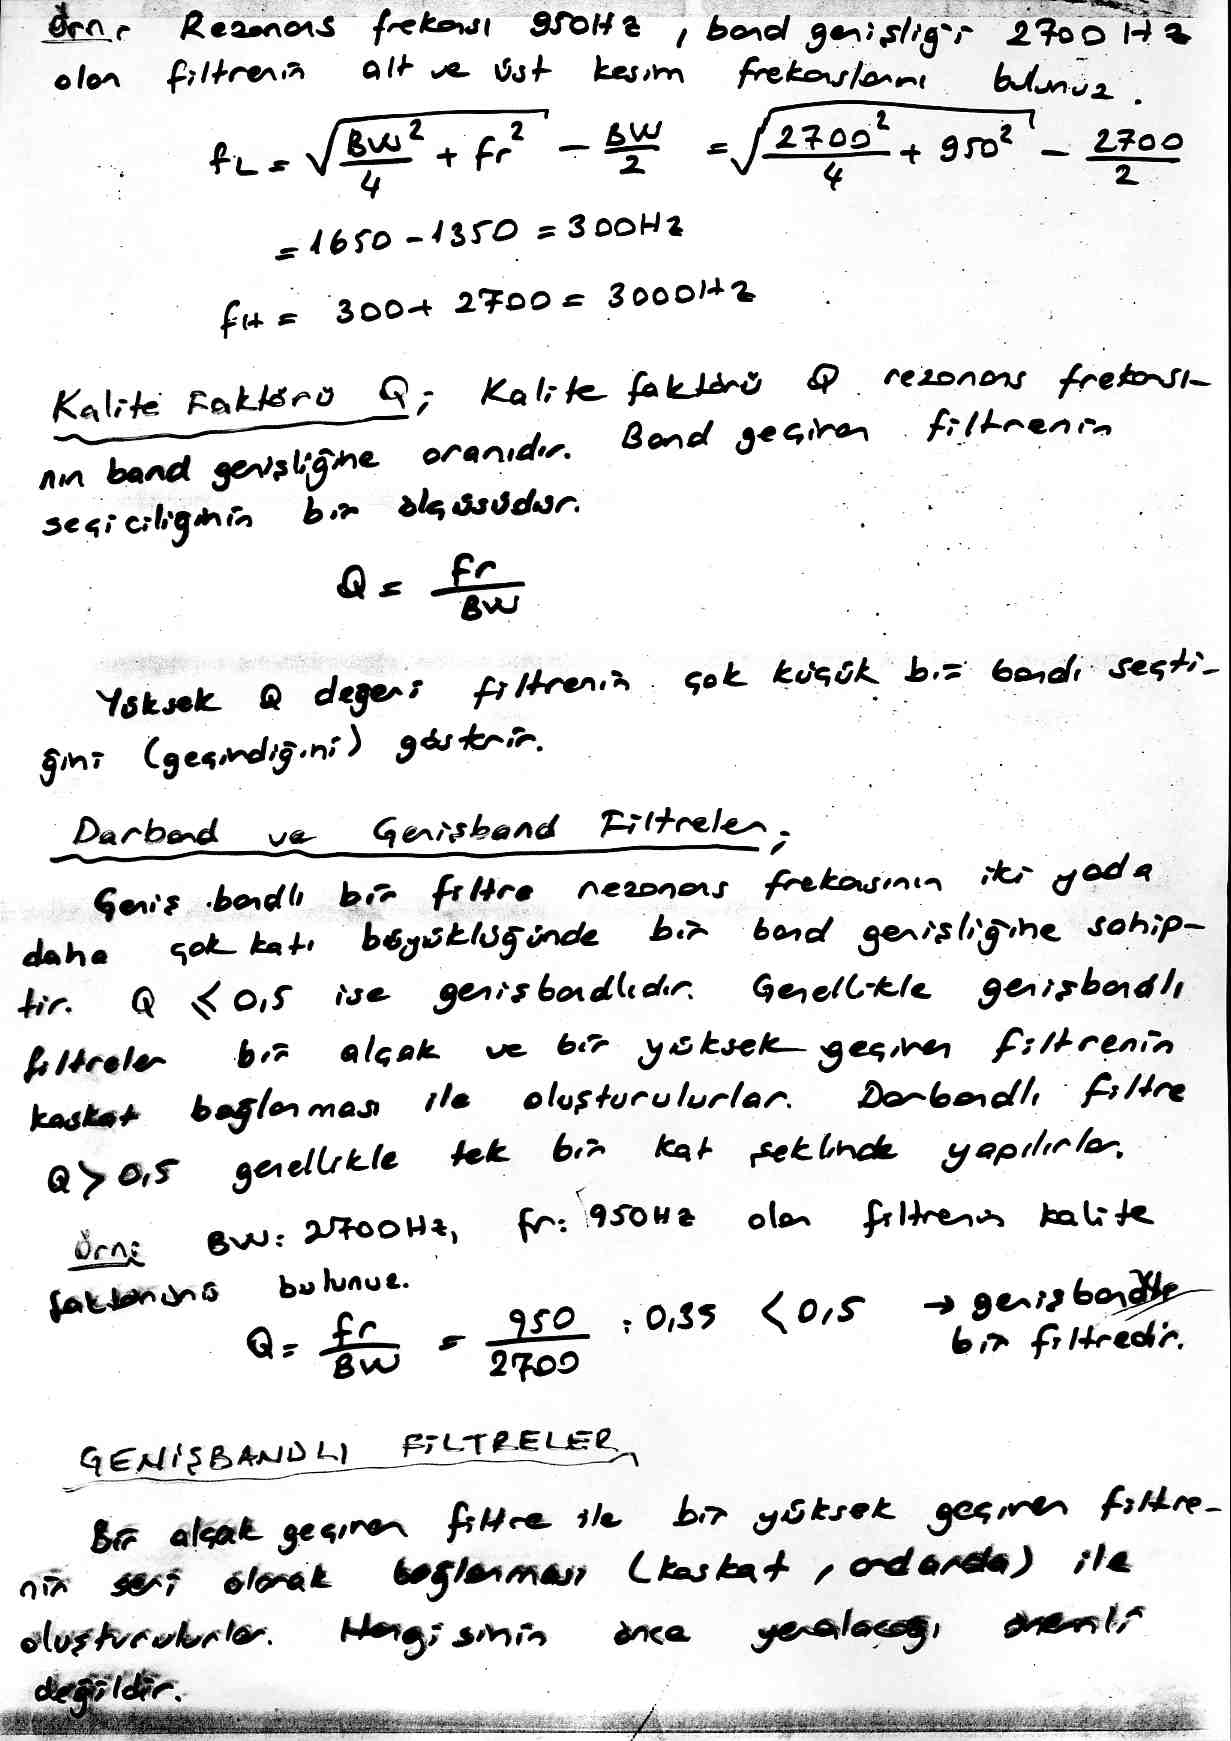 Örn: Rezonans frekansı 950Hz, band genişliği 2700 Hz
olan filtrenin alt ve üst kesim frekanslarını bulunuz.
fL = √(BW²/4 + fr²) − BW/2 = √(2700²/4 + 950²) − 2700/2
= 1650 − 1350 = 300Hz
fH = 300 + 2700 = 3000Hz
Kalite Faktörü Q; Kalite faktörü Q rezonans frekansı-
nın band genişliğine oranıdır. Band geçiren filtrenin
seçiciliğinin bir ölçüsüdür.
Q = fr/BW
Yüksek Q değeri filtrenin çok küçük bir bandı seçti-
ğini (geçirdiğini) gösterir.
Darband ve Genişband Filtreler;
Geniş bandlı bir filtre rezonans frekansının iki yada
daha çok katı büyüklüğünde bir band genişliğine sahip-
tir. Q ≤ 0,5 ise genişbandlıdır. Genellikle genişbandlı
filtreler bir alçak ve bir yüksek geçiren filtrenin
kaskat bağlanması ile oluşturulurlar. Darbandlı filtre
Q > 0,5 genellikle tek bir kat şeklinde yapılırlar.
Örn: BW: 2700Hz, fr: 950Hz olan filtrenin kalite
faktörünü bulunuz.
Q = fr/BW = 950/2700 : 0,35 < 0,5 → genişbandlı
bir filtredir.
GENİŞBANDLI FİLTRELER
Bir alçak geçiren filtre ile bir yüksek geçiren filtre-
nin seri olarak bağlanması (kaskat, ardarda) ile
oluşturulurlar. Hangisinin önce yeralacağı önemli
değildir.